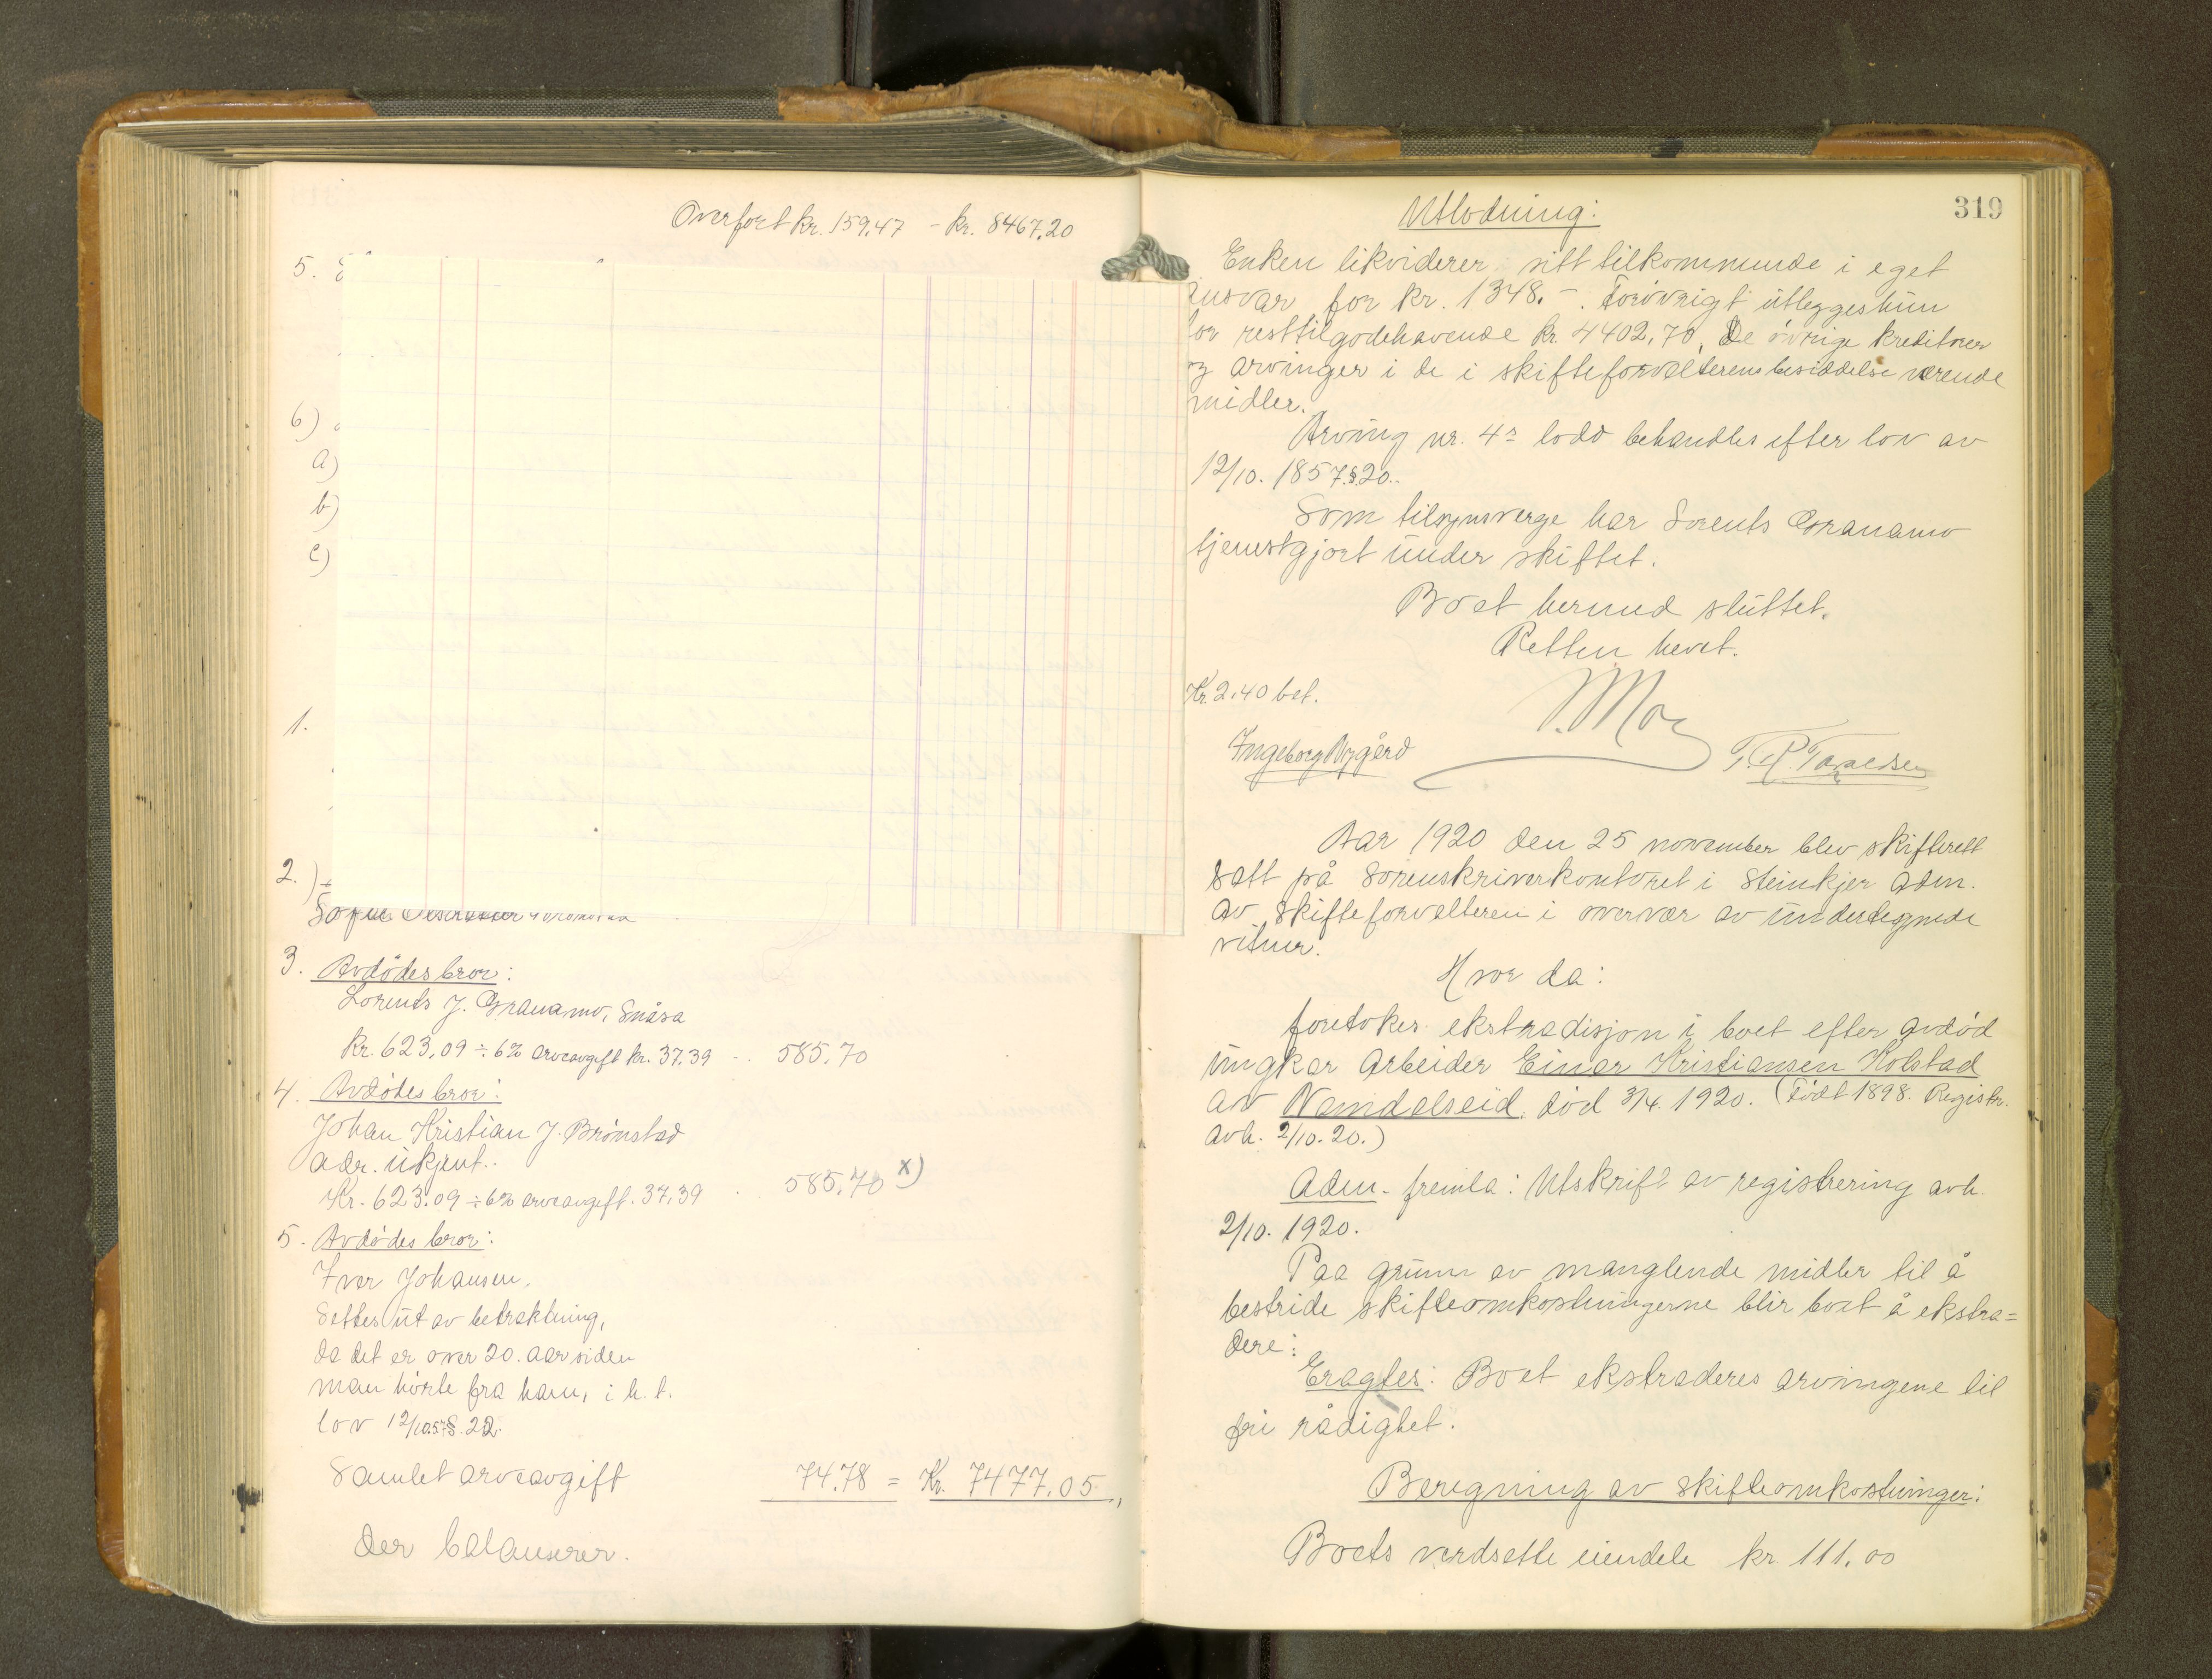 Overført kr. 159,47 - kr. 8467,20
5.
6)
a)
b)
c)
1.
2.)
3. Avdödes bror:
Lorents J. Granamo, Snåsa
Kr. 623,09 ÷ 6% arveavgift kr. 37.39 - . 585,70
4. Avdödes bror:
Johan Kristian J. Brömstad
adr. ukjent.
Kr. 623.09 ÷ 6% arveavgift. 37,39 . 585,70 x)
5. Avdödes bror:
Iver Johansen.
Settes ut av betraktning,
da det er over 20. aar siden
man hörte fra ham, i h. t.
lov 12/10.57 § 22.
Samlet arveavgift 74,78 = Kr. 7477,05.
der balanserer.
319
Utlodning:
Enken likviderer sitt tilkommende i eget
ansvar for kr. 1348.-. Forövrigt utlegges hun
for resttilgodehavende kr. 4402,70, De övrige kreditorer
og arvinger i de i skifteforvalterens besiddelse verende
midler.
Arving nr. 4s lodd behandles efter lov av
12/10. 1857 § 20.
Som tilsynsverge har Lorents Granamo
tjenestgjort under skiftet.
Boet hermed sluttet.
Retten hevet.
Kr. 2.40 bet.
Ingeborg Nygård
Aar 1920 den 25 november blev skifterett
satt på Sorenskriverkontoret i Steinkjer adm.
av skifteforvalteren i overvær av undertegnede
vitner.
Hvor da:
foretokes ekstradisjon i boet efter avdöd
ungkar arbeider Einar Kristiansen Holstad
av Namdalseid. död 3/4. 1920. (Födt 1898. Registr.
avh. 2/10. 20.)
Adm. fremla: Utskrift av registrering avh.
2/10. 1920.
Paa grunn av manglende midler til å
bestride skifteomkostningerne blir boet å ekstra=
dere:
Eragtes: Boet ekstraderes arvingene til
fri rådighet.
Beregning av skifteomkostninger:
Boets verdsette eiendele kr 111.00